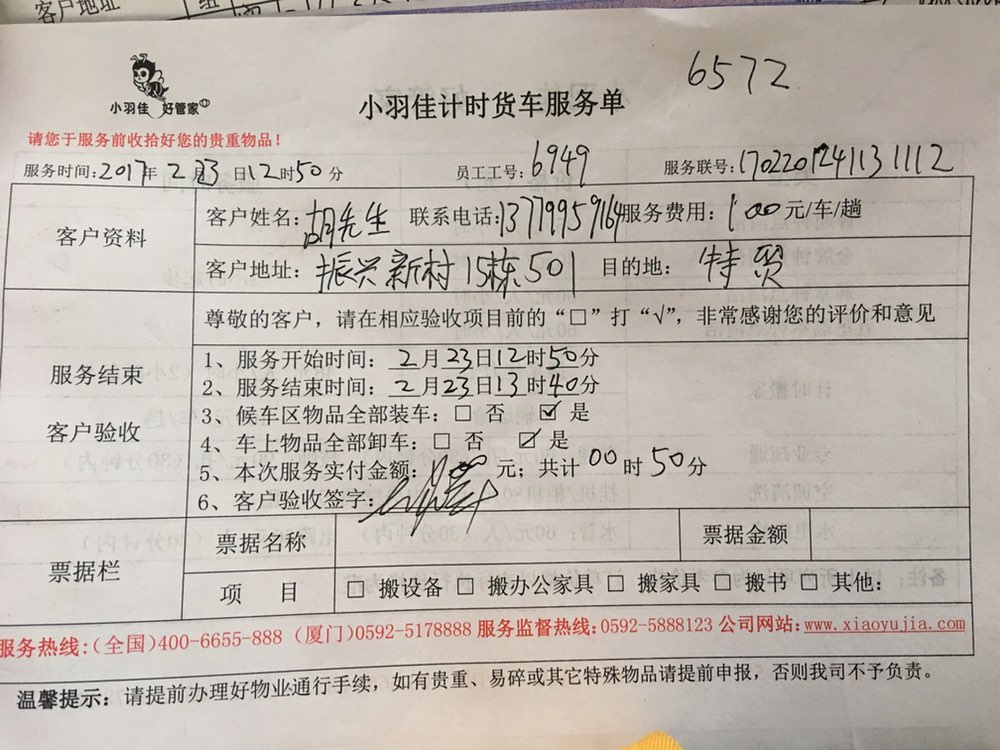 客户地址
6572
小羽佳 好管家
小羽佳计时货车服务单
请您于服务前收拾好您的贵重物品！
服务时间:2017年 2月23日12时50分 员工工号:6949 服务联号:170220124113 1112
客户资料
客户姓名:胡先生 联系电话:13779959164服务费用:100元/车/趟
客户地址：振兴新村15栋501 目的地：特贸
尊敬的客户，请在相应验收项目前的“□”打“√”，非常感谢您的评价和意见
服务结束
客户验收
1、服务开始时间：2月23日12时50分
2、服务结束时间：2月23日13时40分
3、候车区物品全部装车：□ 否 ☑ 是
4、车上物品全部卸车：□ 否 ☑ 是
5、本次服务实付金额： 元；共计00时50分
6、客户验收签字：
票据栏
票据名称 票据金额
项 目 □ 搬设备 □ 搬办公家具 □ 搬家具 □ 搬书 □ 其他:
服务热线:(全国)400-6655-888 (厦门)0592-5178888 服务监督热线:0592-5888123 公司网站:www.xiaoyujia.com
温馨提示：请提前办理好物业通行手续，如有贵重、易碎或其它特殊物品请提前申报，否则我司不予负责。